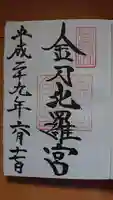 金刀比羅宮
平成二十九年六月十七日